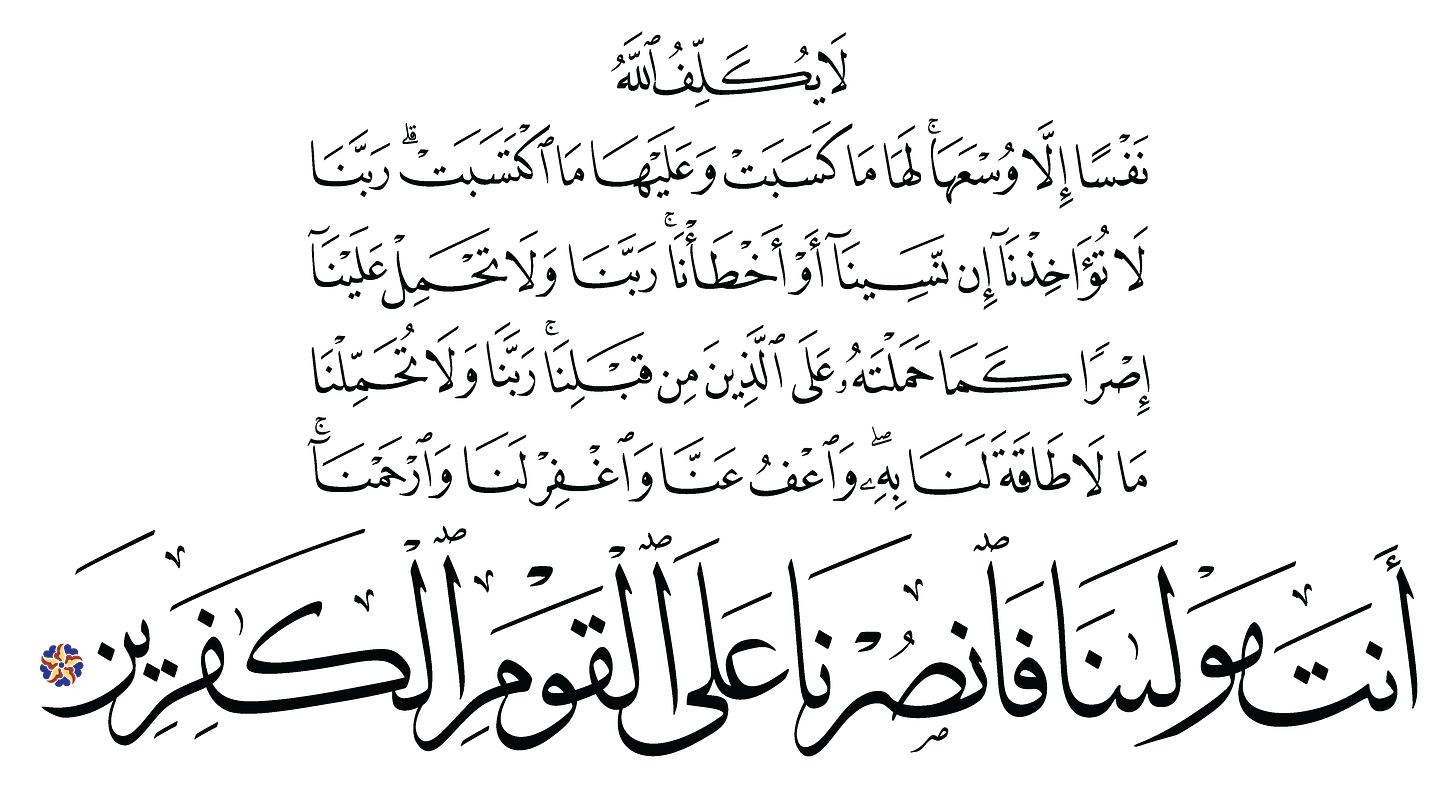 لَا يُكَلِّفُ ٱللَّهُ
نَفْسًا إِلَّا وُسْعَهَاۚ لَهَا مَا كَسَبَتْ وَعَلَيْهَا مَا ٱكْتَسَبَتْۗ رَبَّنَا
لَا تُؤَاخِذْنَآ إِن نَّسِينَآ أَوْ أَخْطَأْنَاۚ رَبَّنَا وَلَا تَحْمِلْ عَلَيْنَآ
إِصْرًا كَمَا حَمَلْتَهُۥ عَلَى ٱلَّذِينَ مِن قَبْلِنَاۚ رَبَّنَا وَلَا تُحَمِّلْنَا
مَا لَا طَاقَةَ لَنَا بِهِۦۖ وَٱعْفُ عَنَّا وَٱغْفِرْ لَنَا وَٱرْحَمْنَآۚ
أَنتَ مَوْلَىٰنَا فَٱنصُرْنَا عَلَى ٱلْقَوْمِ ٱلْكَٰفِرِينَ